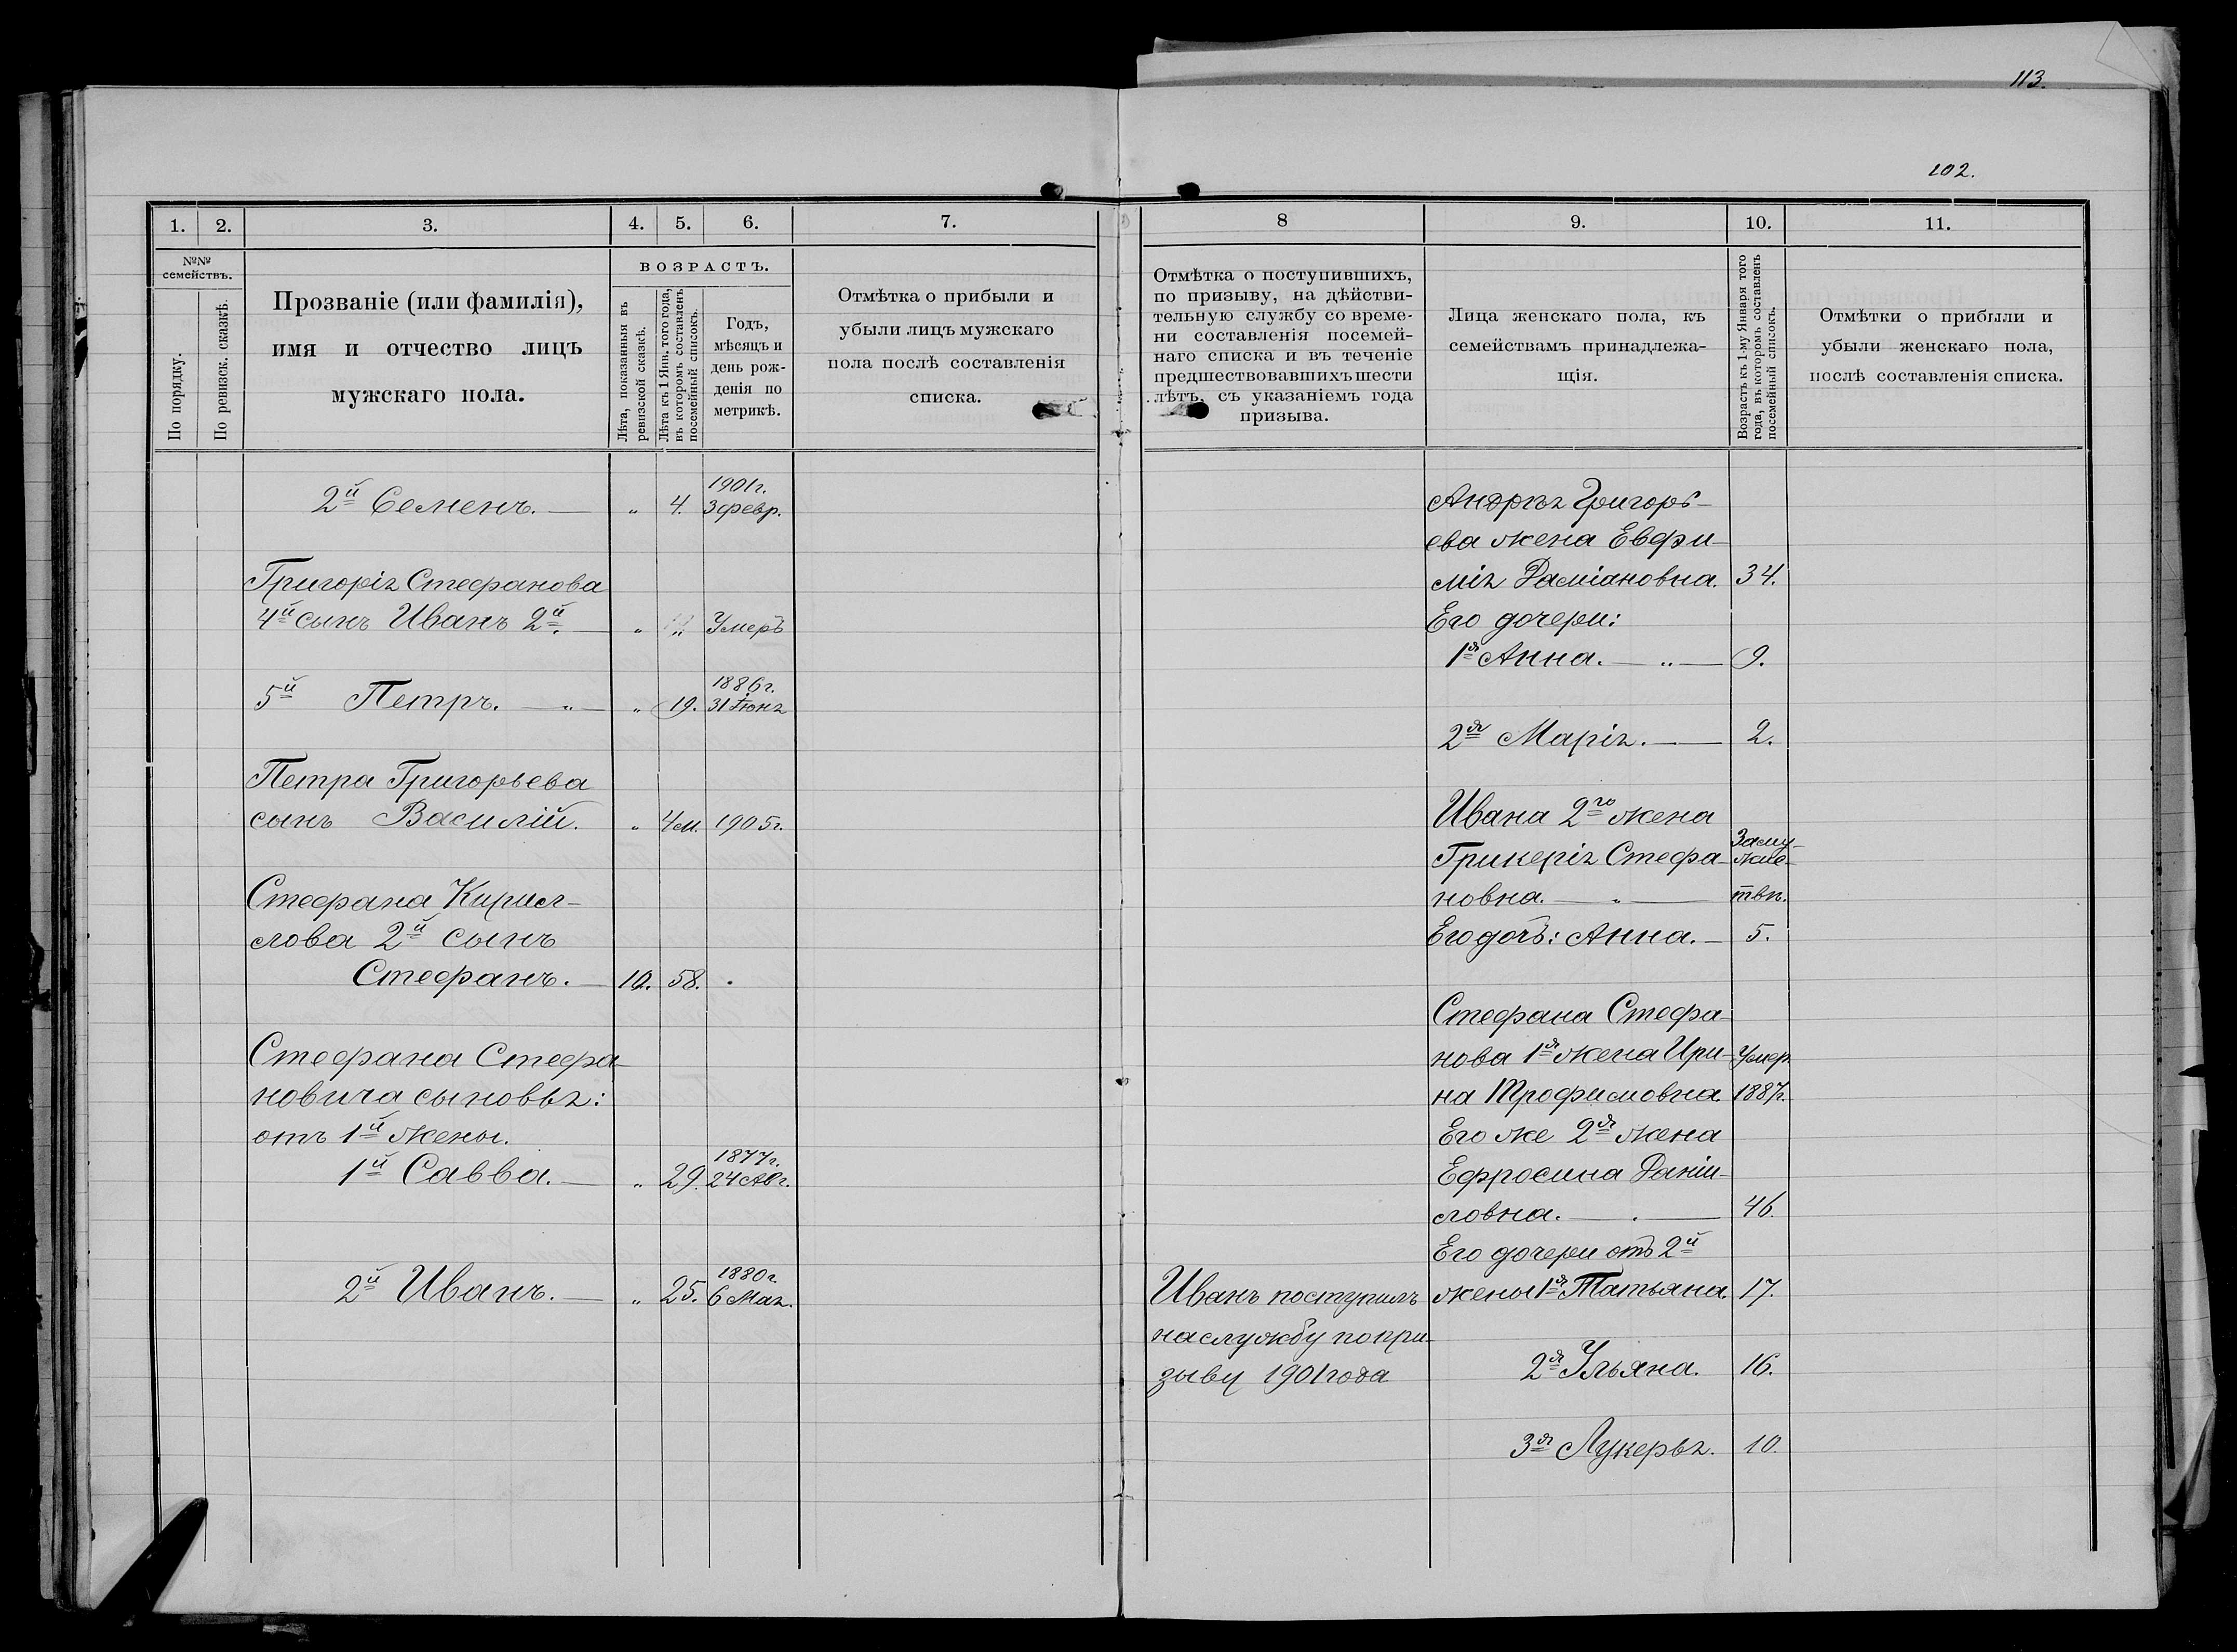 113.
102.
1. 2. 3. 4. 5. 6. 7.
№№ семействъ.
По порядку.
По ревизск. сказкѣ.
Прозваніе (или фамилія),
имя и отчество лицъ
мужскаго пола.
ВОЗРАСТЪ.
Лѣта, показанныя въ
ревизской сказкѣ.
Лѣта къ 1 Янв. того года,
въ которомъ составленъ
посемейный списокъ.
Годъ,
мѣсяцъ и
день рож-
денія по
метрикѣ.
Отмѣтка о прибыли и
убыли лицъ мужскаго
пола послѣ составленія
списка.
1901г.
2й Семенъ. — „ 4. 3 февр.
Григорія Стефанова
4й сынъ Иванъ 2й. — „ „ Умеръ
1886г.
5й Петръ. — „ — „ 19. 31 Іюня
Петра Григорьева
сынъ Василій. „ 4 м. 1905г.
Стефана Кирил-
лова 2й сынъ
Стефанъ. — 10. 58.
Стефана Стефа-
новича сыновья:
отъ 1й жены.
1877г.
1й Савва. — „ 29. 24 Авг.
1880г.
2й Иванъ. — „ 25. 6 Мая.
8 9. 10. 11.
Отмѣтка о поступившихъ,
по призыву, на дѣйстви-
тельную службу со време-
ни составленія посемей-
наго списка и въ теченіе
предшествовавшихъ шести
лѣтъ, съ указаніемъ года
призыва.
Лица женскаго пола, къ
семействамъ принадлежа-
щія.
Возрастъ къ 1-му Января того
года, въ которомъ составленъ
посемейный списокъ.
Отмѣтки о прибыли и
убыли женскаго пола,
послѣ составленія списка.
Андрея Григорь-
ева жена Евфи-
мія Даміановна. 34.
Его дочери:
1я Анна. — „ — 9.
2я Марія. — 2.
Ивана 2го жена
Гликерія Стефа- Заму-
жес-
новна. — „ — твѣ.
Его дочь: Анна. — 5.
Стефана Стефа-
нова 1я жена Ири- Умер.
на Трофимовна. 1887г.
Его же 2я жена
Ефросина Даніи-
ловна. — 46.
Его дочери отъ 2й
жены 1я Татьяна. 17.
Иванъ поступилъ
на службу по при-
зыву 1901 года
2я Ульяна. 16.
3я Лукерья. 10.